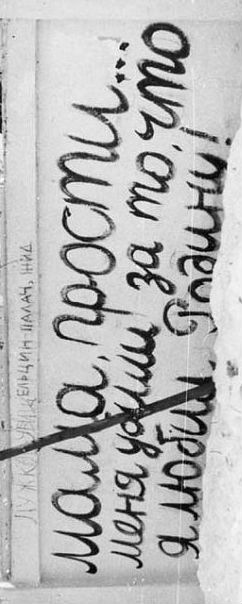 ЛУЖКОВ УБИЙЦА ЕЛЬЦИН ПАЛАЧ, ЖИД
мама, прости...
меня убили за то, что
я любил Родину!